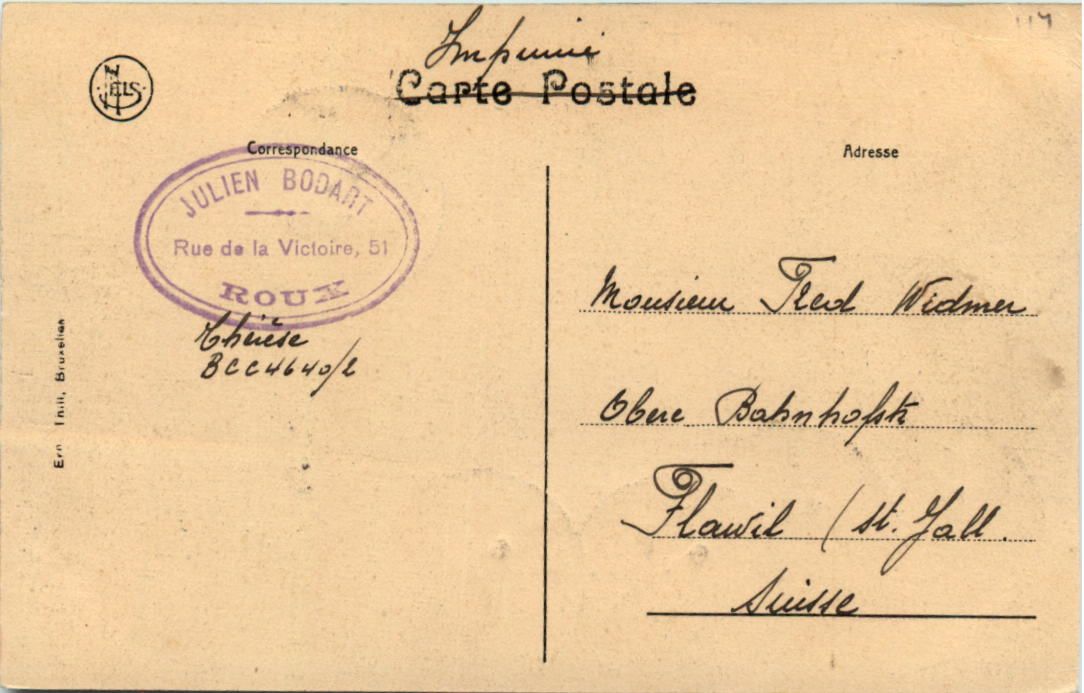 117
Imprimé
Carte Postale
NELS
Correspondance
Adresse
JULIEN BODART
Rue de la Victoire, 51
ROUX
Thérèse
BCC4640/2
Ern. Thill, Bruxelles
Monsieur Fred Widmer
Obere Bahnhofstr
Flawil (St. Gall.
Suisse